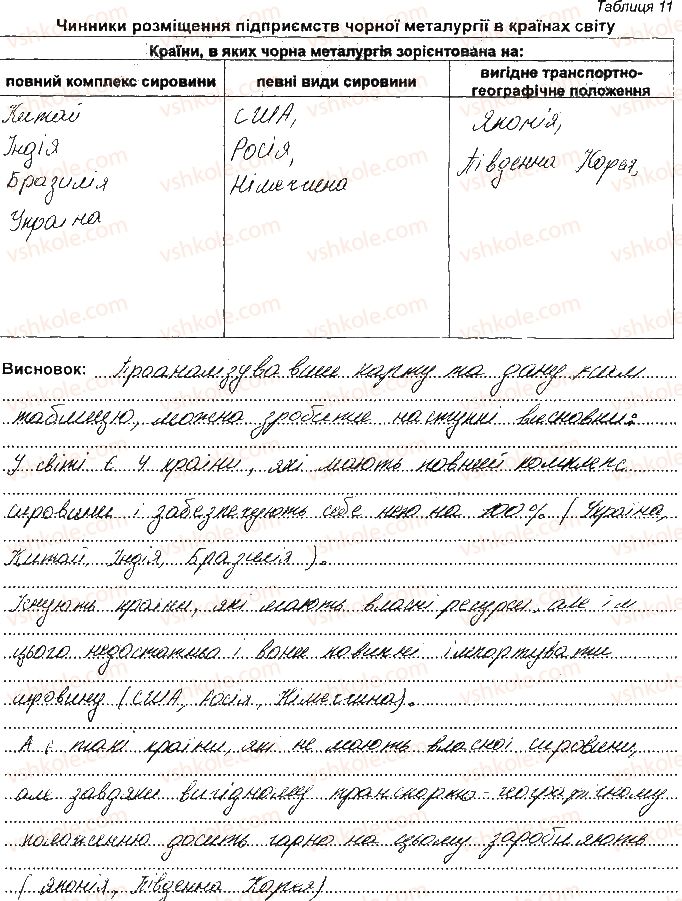 Таблиця 11
Чинники розміщення підприємств чорної металургії в країнах світу
Країни, в яких чорна металургія зорієнтована на:
повний комплекс сировини
певні види сировини
вигідне транспортно-
географічне положення
Китай
Індія
Бразилія
Україна
США,
Росія,
Німеччина
Японія,
Південна Корея,
Висновок: Проаналізувавши карту та дану нам
таблицю, можна зробити наступні висновки:
У світі є 4 країни, які мають повний комплекс
сировини і забезпечують себе нею на 100% (Україна,
Китай, Індія, Бразилія).
Існують країни, які мають власні ресурси, але їм
цього недостатньо і вони повинні імпортувати
сировину (США, Росія, Німеччина).
А є такі країни, які не мають власної сировини,
але завдяки вигідному транспортно-географічному
положенню досить гарно на цьому заробляють
(Японія, Південна Корея)
vshkole.com